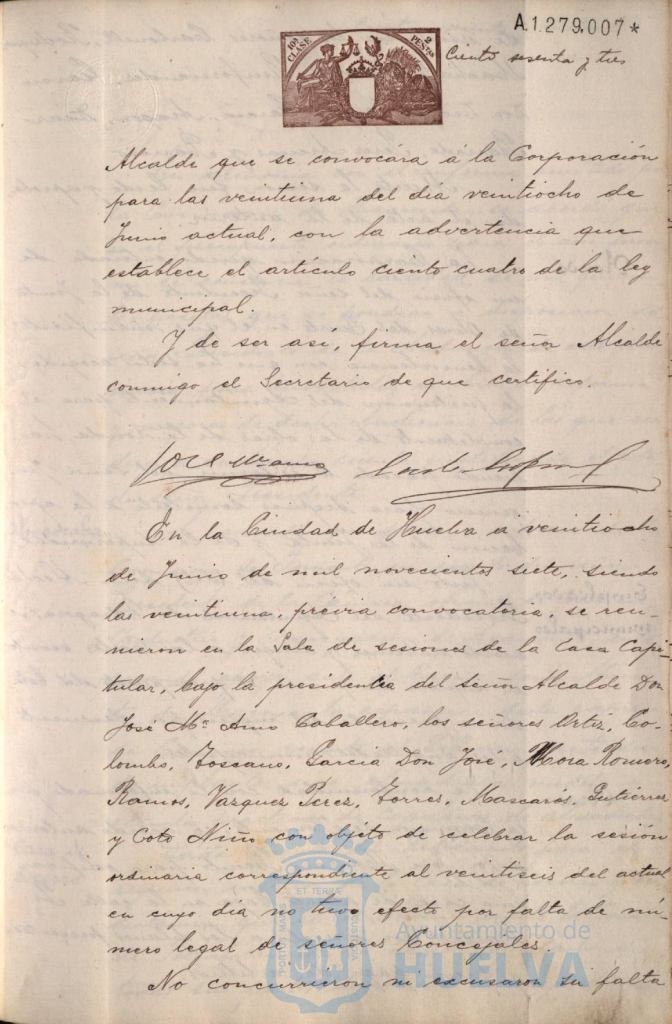 A.1.279,007*
10ª CLASE
2 PESTAS
Ciento sesenta y tres
Alcalde que se convocára á la Corporación
para las veintiuna del dia veintiocho de
Junio actual, con la advertencia que
establece el artículo ciento cuatro de la ley
municipal.
Y de ser así, firma el señor Alcalde
conmigo el Secretario de que certifico.
José Mª Amo
En la Ciudad de Huelva a veintiocho
de Junio de mil novecientos siete, siendo
las veintiuna, prévia convocatoria, se reu-
nieron en la Sala de sesiones de la Casa Capi-
tular, bajo la presidencia del señor Alcalde Don
José Mª Amo Caballero, los señores Ortiz, Co-
lombo, Toscano, Garcia Don José, Mora Romero,
Ramos, Vazquez Perez, Torres, Mascarós, Gutiérrez
y Coto Niño con objeto de celebrar la sesión
ordinaria correspondiente al veintiseis del actual
en cuyo dia no tuvo efecto por falta de nú-
mero legal de señores Concejales.
No concurrieron ni excusaron su falta
PORTUS MARIS ET TERRAE CUSTODIA
Ayuntamiento de
HUELVA